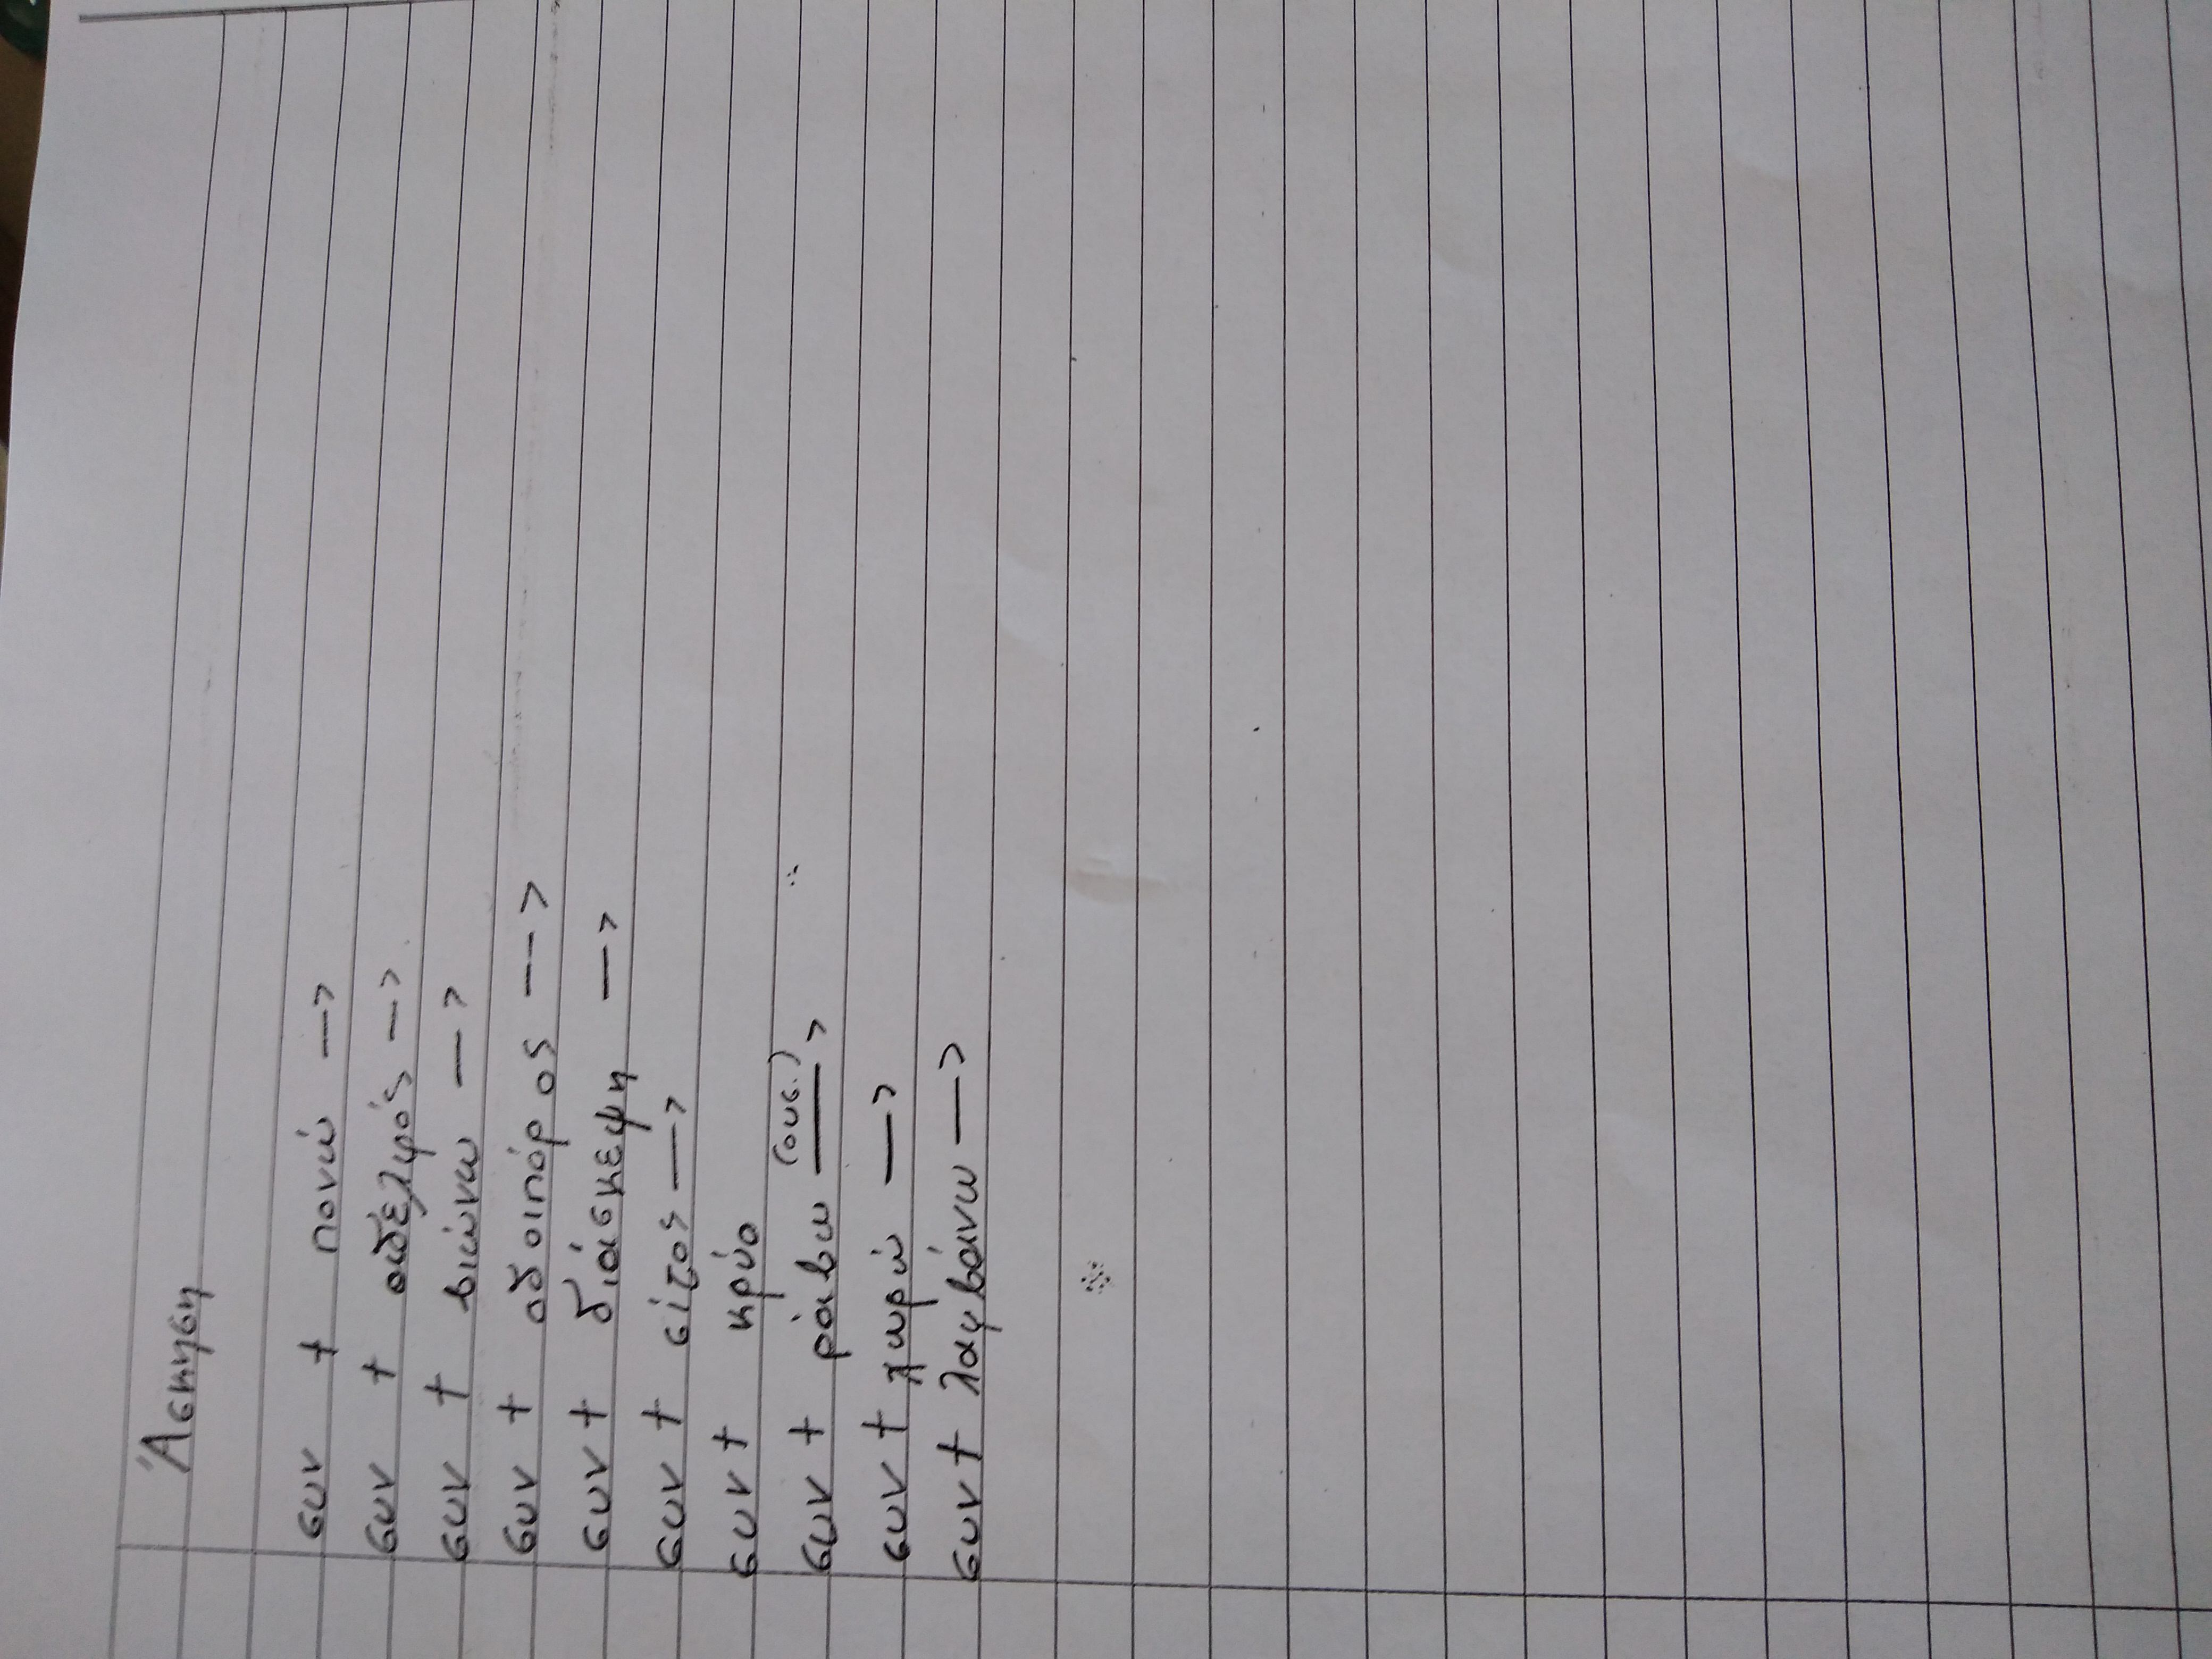 Άσκηση
συν + πονώ —>
συν + αδελφός —>
συν + βιώνω —>
συν + οδοιπόρος —>
συν + διάσκεψη —>
συν + σίτος —>
συν + κρύο
συν + ράβω (ουσ.) —>
συν + χωρώ —>
συν + λαμβάνω —>